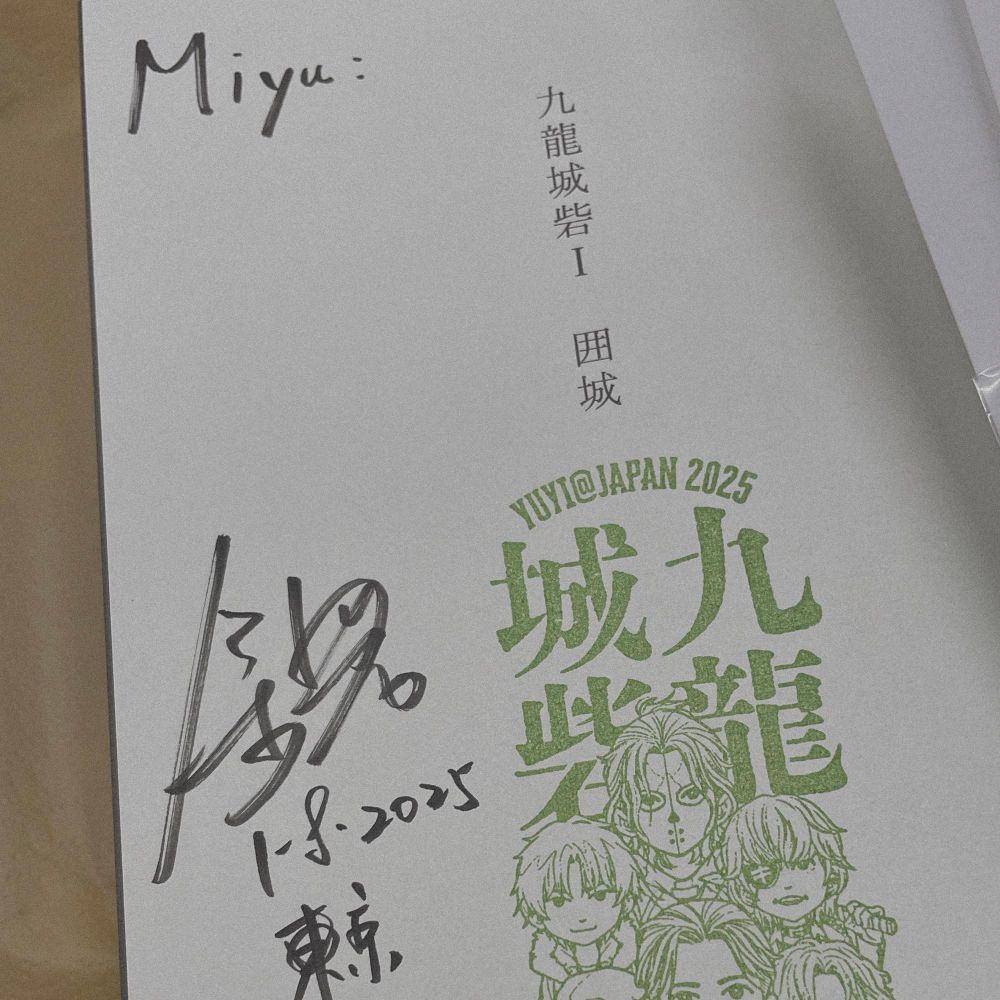 Miyu:
九龍城砦I 囲城
YUYI@JAPAN 2025
九龍
城砦
1-8.2025
東京